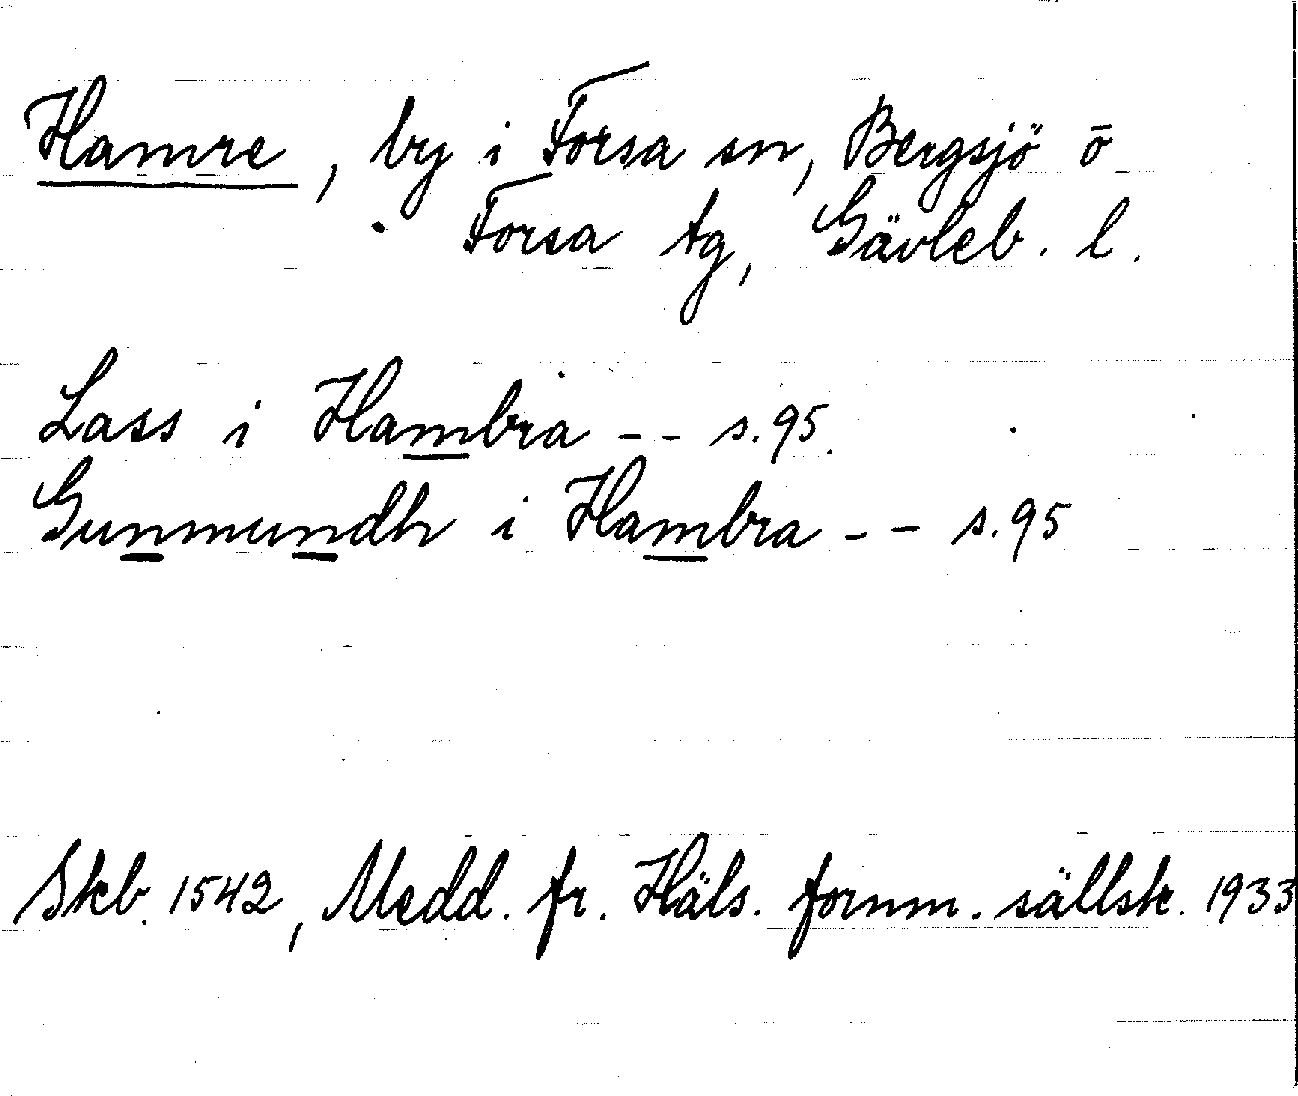 Hamre, by i Forsa sn, Bergsjö o
Forsa tg, Gävleb. l.
Lass i Hambra -- s. 95.
Gunmundh i Hambra -- s. 95
Skb. 1542, Medd. fr. Häls. fornm. sällsk. 1933